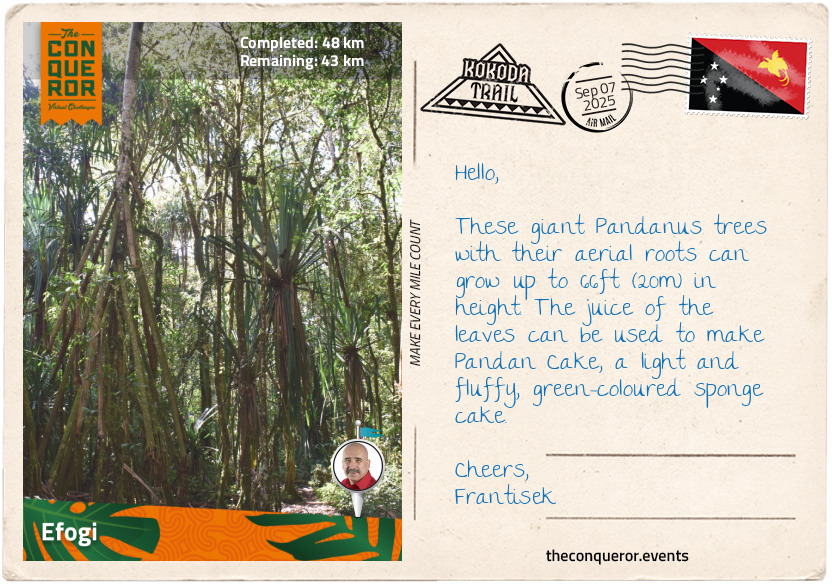 The
CON
QUE
ROR
Virtual Challenges
Completed: 48 km
Remaining: 43 km
Efogi
MAKE EVERY MILE COUNT
KOKODA
TRAIL
Sep 07
2025
AIR MAIL
Hello,
These giant Pandanus trees
with their aerial roots can
grow up to 66ft (20m) in
height. The juice of the
leaves can be used to make
Pandan Cake, a light and
fluffy, green-coloured sponge
cake.
Cheers,
Frantisek
theconqueror.events